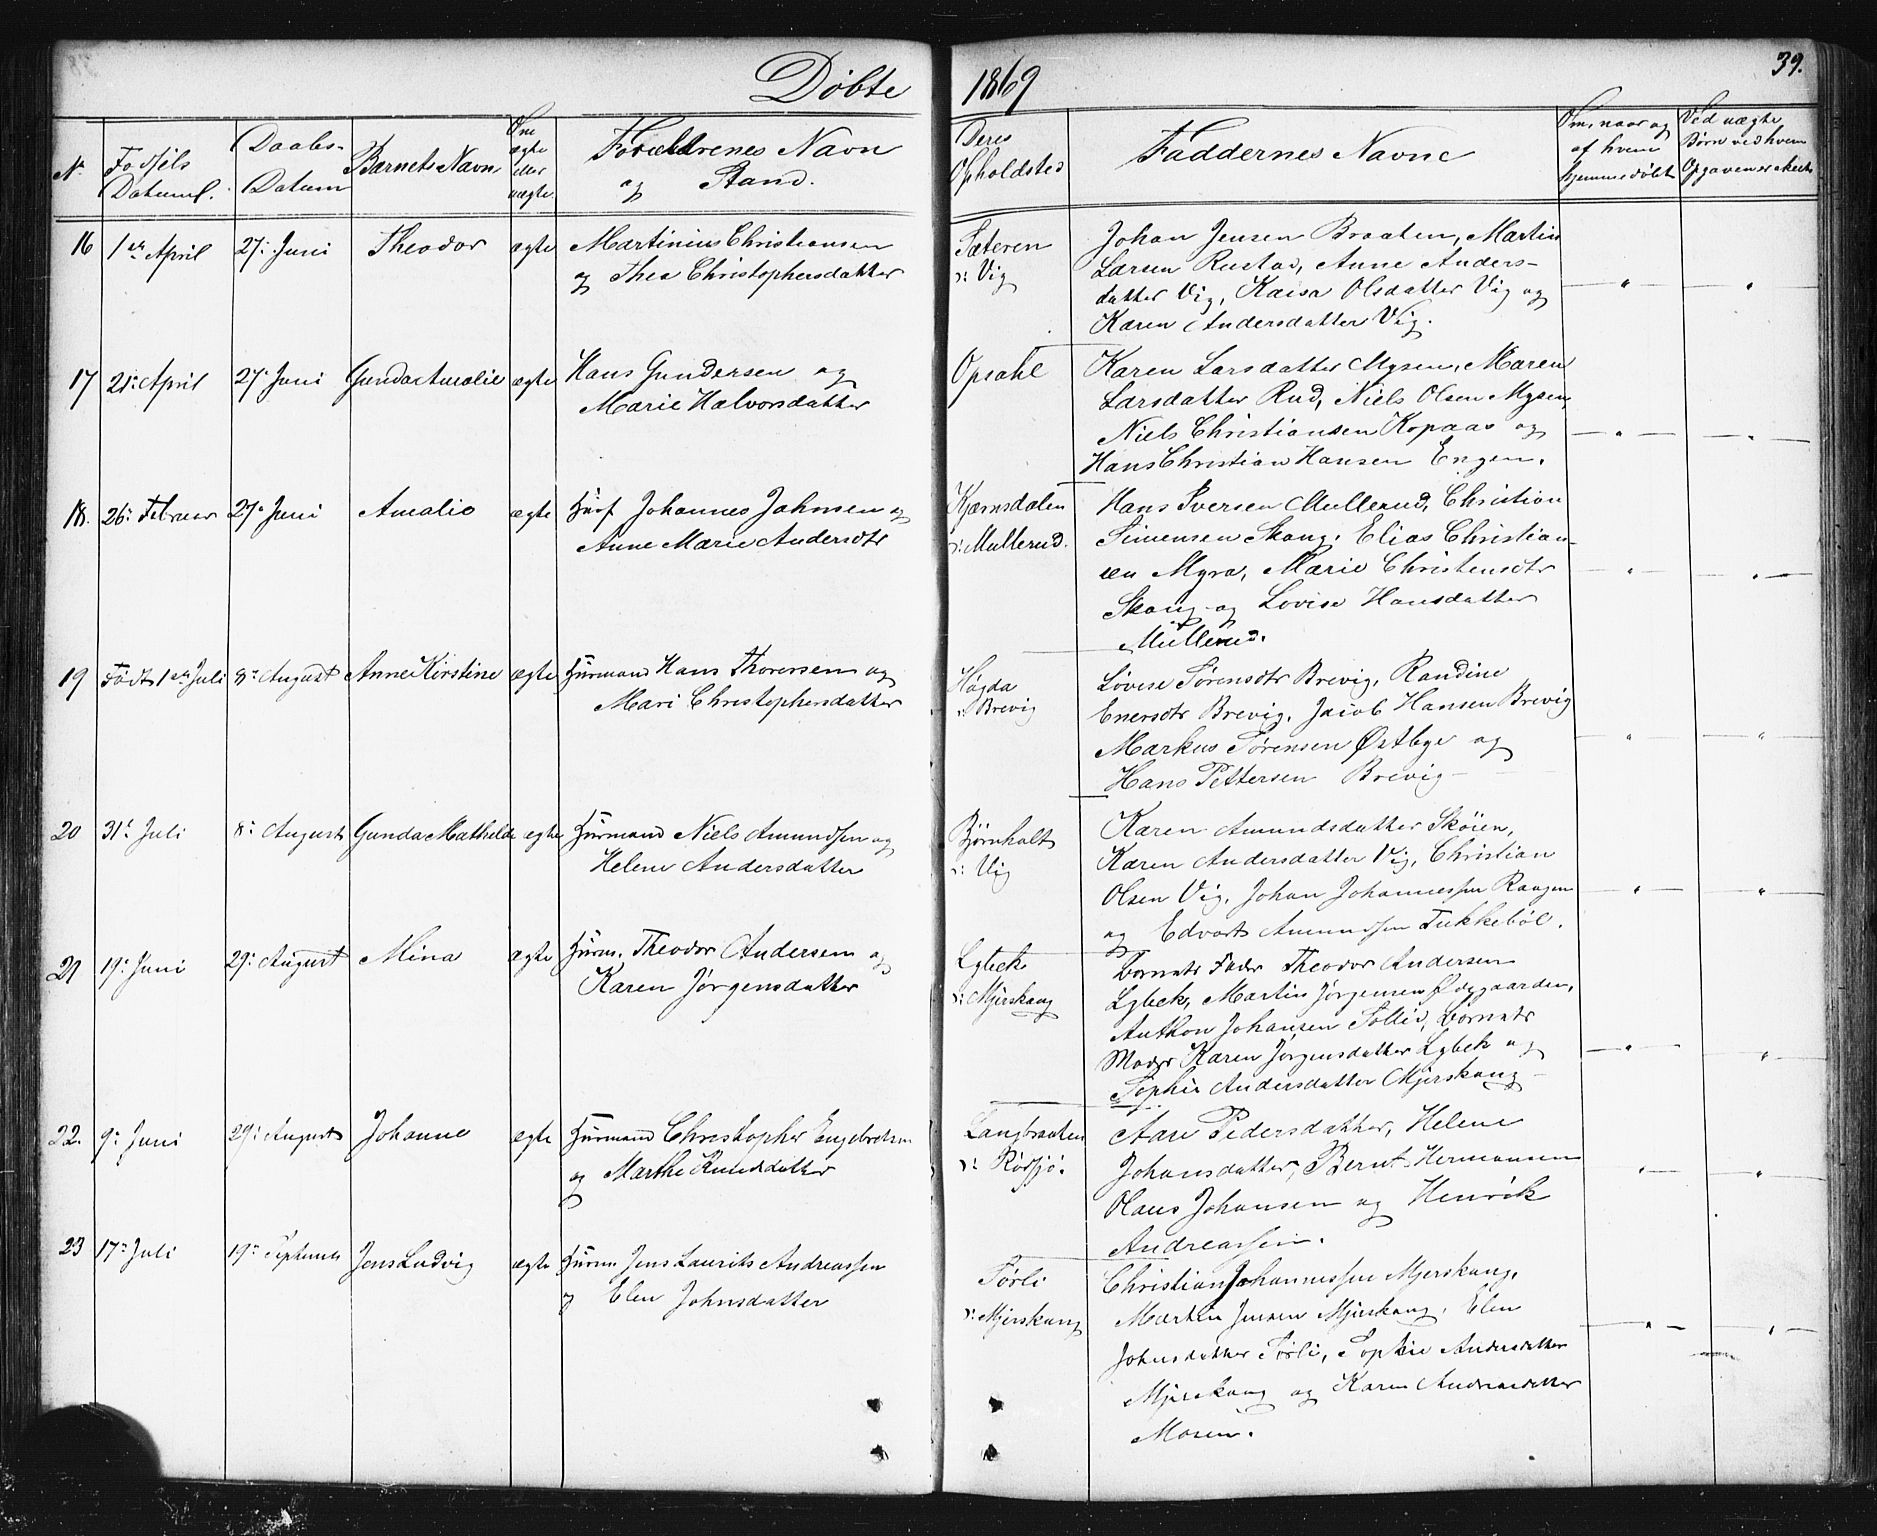 Døbte 1869 39.
No. Fødsels Datum. Daabs-Datum Barnets Navn Om ægte eller uægte. Forældrenes Navn og Stand. Deres Opholdsted Faddernes Navne Om, naar og af hvem hjemmedøbt Ved uægte Børn ved hvem Opgaven er skeet
16 1ste April 27de Juni Theodor ægte Martinius Christiansen Sæteren Johan Jensen Braaten, Martin
og Thea Christophersdatter v: Vig Larsen Rustad, Anne Anders-
datter Vig, Kaisa Olsdatter Vig og
Karen Andersdatter Vig.
17 21: April 27: Juni Gunda Amalie ægte Hans Gundersen og Opsahl Karen Larsdatter Mysen, Maren
Marie Halvorsdatter Larsdatter Rud, Niels Olsen Mysen,
Niels Christiansen Kopaas og
Hans Christian Hansen Engen.
18. 26: Februar 27: Juni Amalie ægte Huusf Johannes Johnsen og Kjærnsdalen Hans Iversen Mullerud, Christian
Anne Marie Andersdtr v: Mullerud. Simensen Skaug, Elias Christian-
sen Myra, Marie Christensdtr
Skaug og Lovise Hansdatter
Mullerud.
19 Født 1ste Juli 8: August Anne Kirstine ægte Huusmand Hans Thoresen og Høgda Lovise Sørensdtr Brevig, Randine
Mari Christophersdatter v: Brevig Enersdtr Brevig, Jacob Hansen Brevig
Markus Sørensen Østbye og
Hans Pettersen Brevig
20 31: Juli 8: August Gunda Mathilde ægte Huusmand Niels Amundsen og Bjørnholt Karen Amundsdatter Skøien,
Helene Andersdatter v: Vig Karen Andersdatter Vig, Christian
Olsen Vig, Johan Johannessen Kaagen
og Edvart Amundsen Tukkebøl.
21 19: Juni 29: August Mina ægte Huusm. Theodor Andersen og Lybeck Barnets Fader Theodor Andersen
Karen Jørgensdatter v: Mjerskaug Lybeck, Martin Jørgensen Haugaarden,
Anthon Johansen Sollid, Barnets
Moder Karen Jørgensdatter Lybek og
Sophie Andersdatter Mjerskaug
22. 9: Juni 29: August Johanne ægte Huusmand Christopher Engebretsen Langbraaten Aase Pedersdatter, Helene
og Marthe Knudsdatter v: Rødsjø. Johansdatter, Bernt Hermansen
Olaus Johansen og Henrik
Andreassen.
23 17: Juli 19: September Jens Ludvig ægte Huusm Jens Laurits Andreassen Tørli Christian Johannessen Mjerskaug,
og Elen Johnsdatter v: Mjerskaug Martin Jensen Mjerskaug, Elen
Johnsdatter Tørli, Sophie Andersdatter
Mjerskaug og Karen Andreasdatter
Mosen.